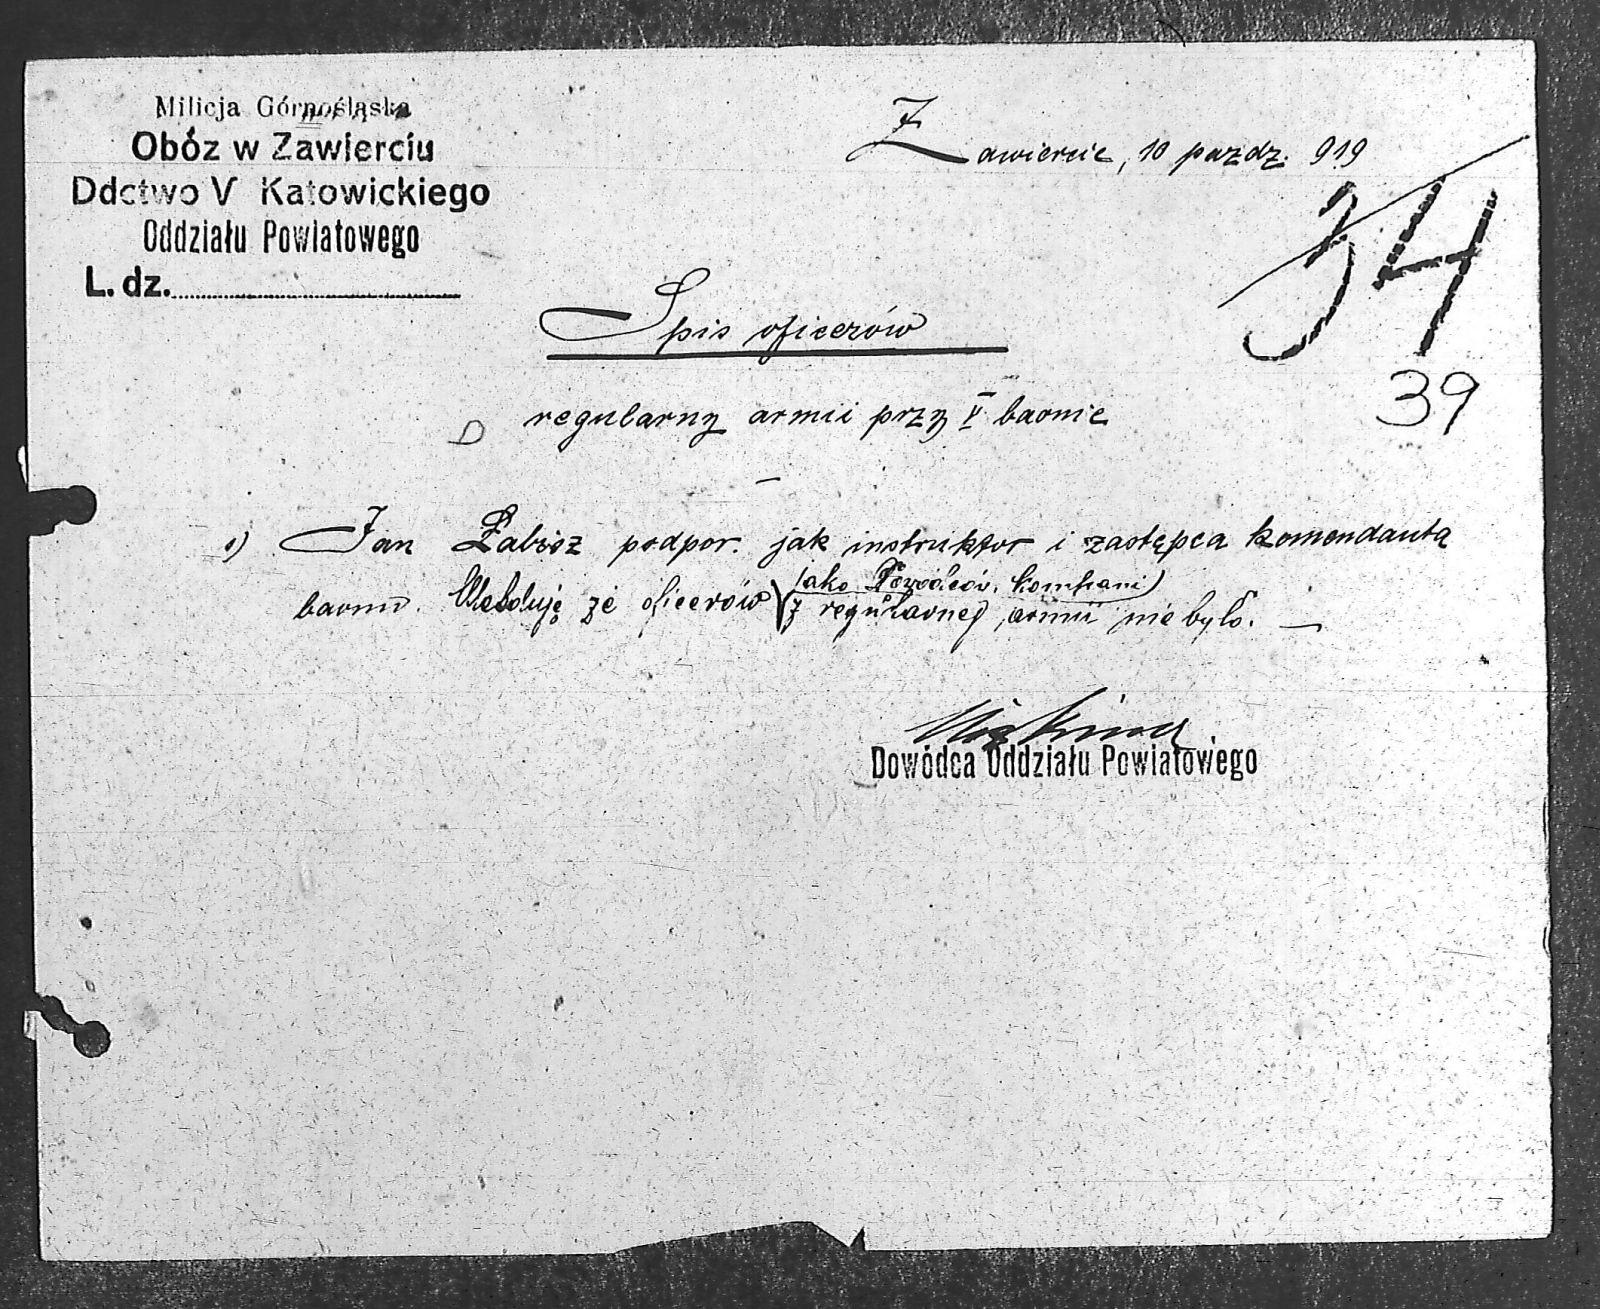 Milicja Górnośląska
Obóz w Zawierciu
Ddctwo V Katowickiego
Oddziału Powiatowego
L. dz.
Zawiercie, 10 pazdz. 919
34
39
Spis oficerów
regularny armii przy V baonie
1) Jan Łabisz podpor. jak instruktor i zastępca komendanta
(jako Dowódców. kompani)
baonu. Melduję ze oficerów z regularnej armii nie było. —
Dowódca Oddziału Powiatowego